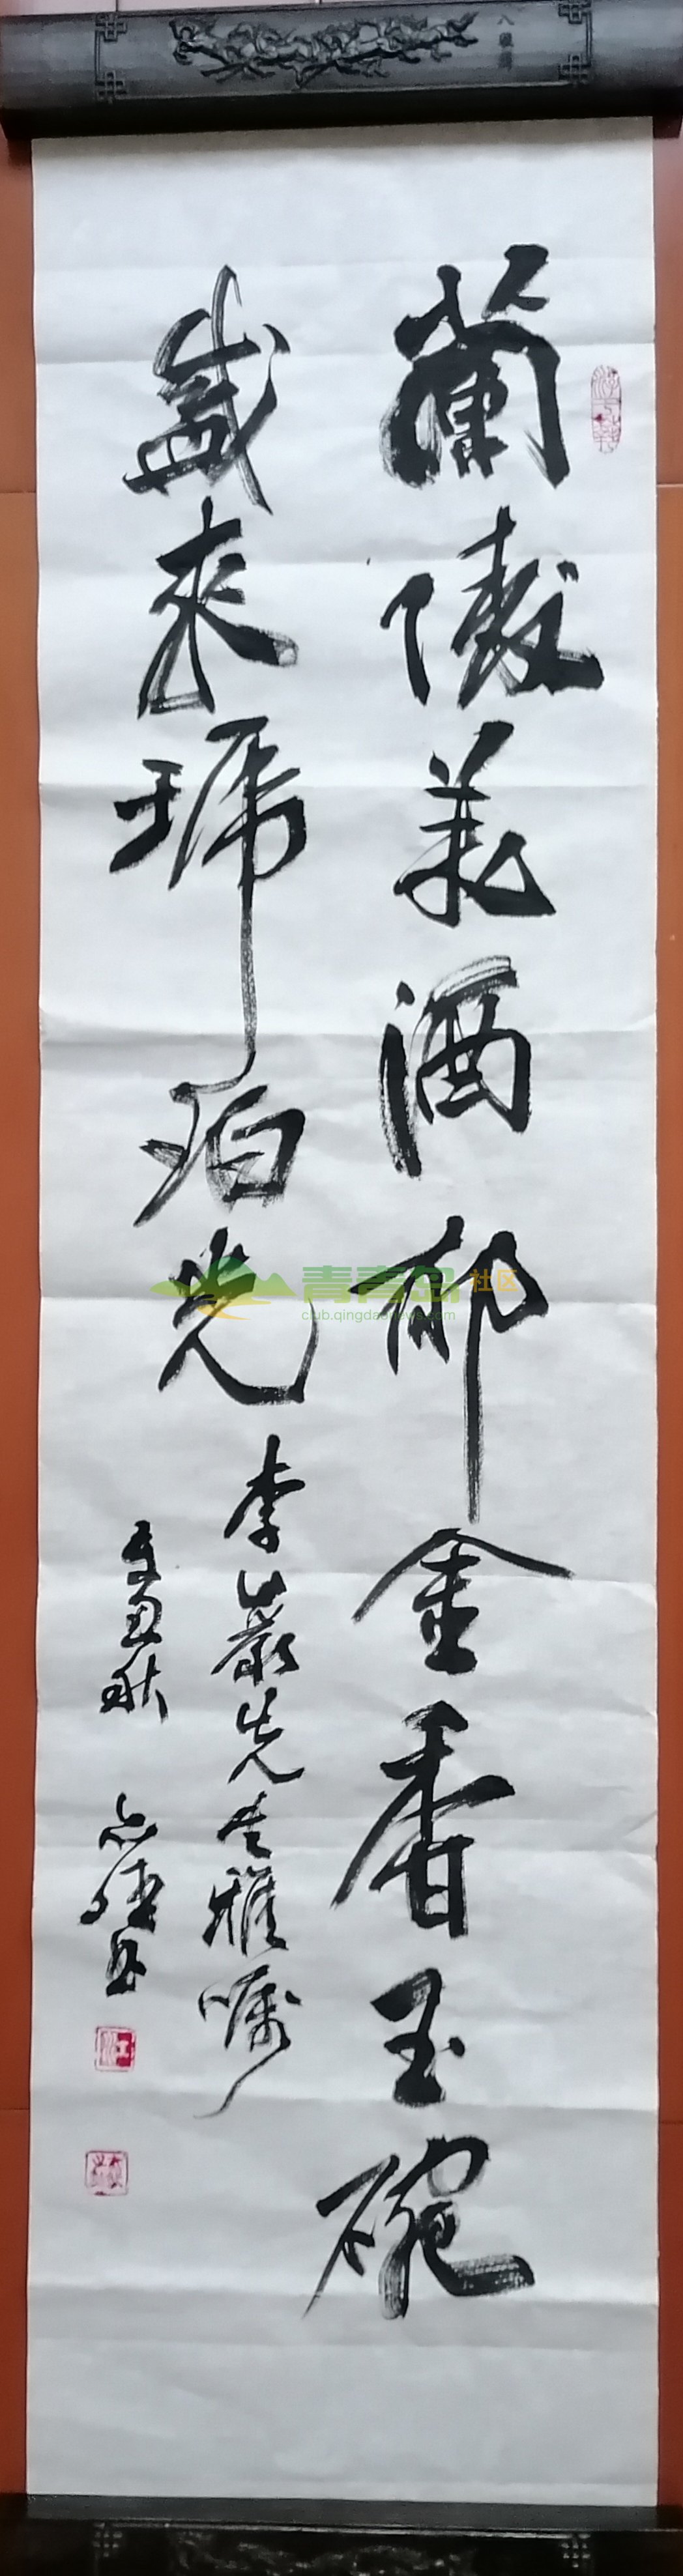 蘭陵美酒郁金香玉碗
盛來琥珀光
李巖先生雅嘱
秋
书
青青岛社区
club.qingdaonews.com